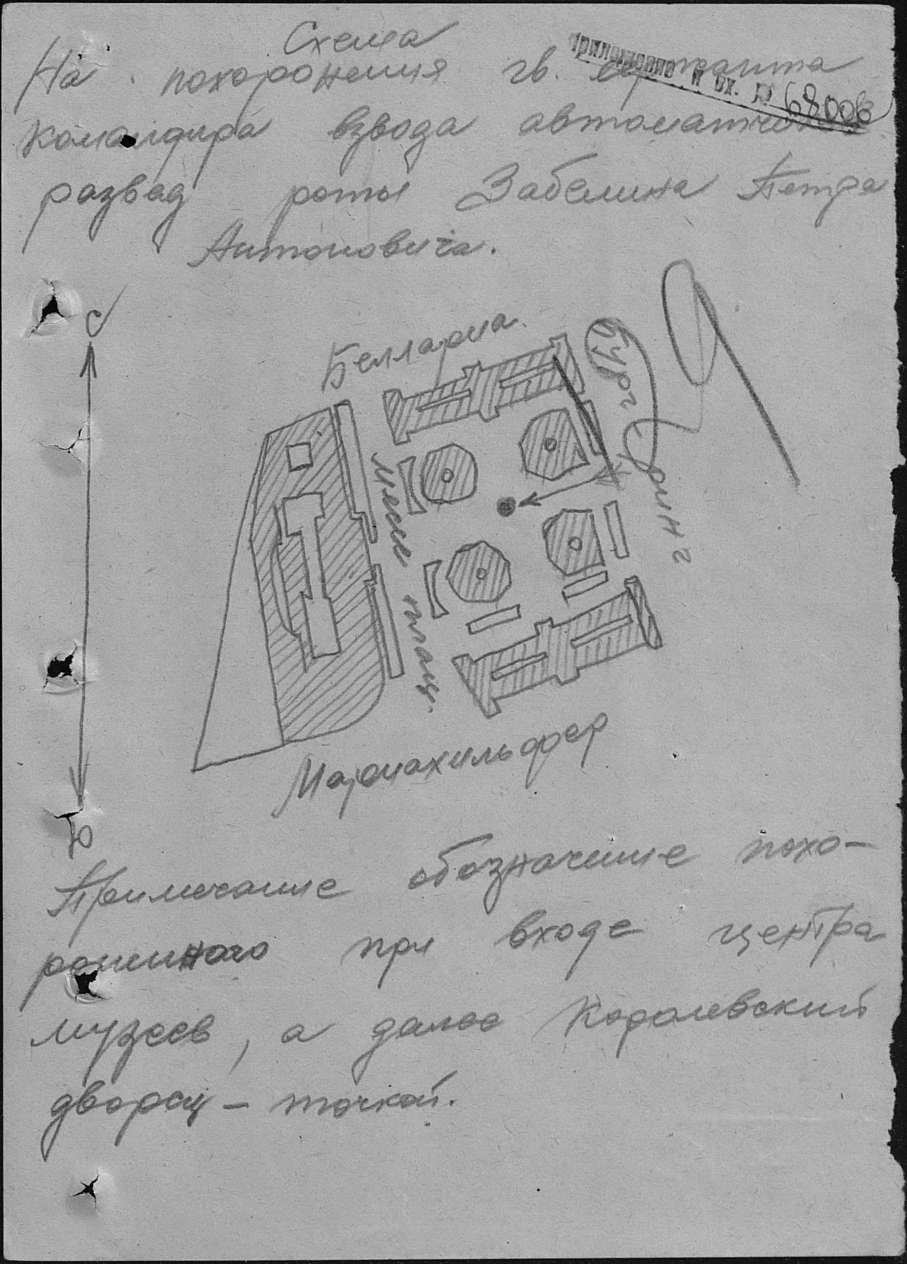 Схема
На похоронения гв. сержанта
командира взвода автоматчиков
развед роты Забелина Петра
Антоновича.
приложение к вх. № 68006
С
Беллариа
Бургринг
Месse плац.
Мариахильфер
Ю
Примечание обозначение похо-
ронинного при входе центра
музеев, а далее Королевский
дворец – точкой.